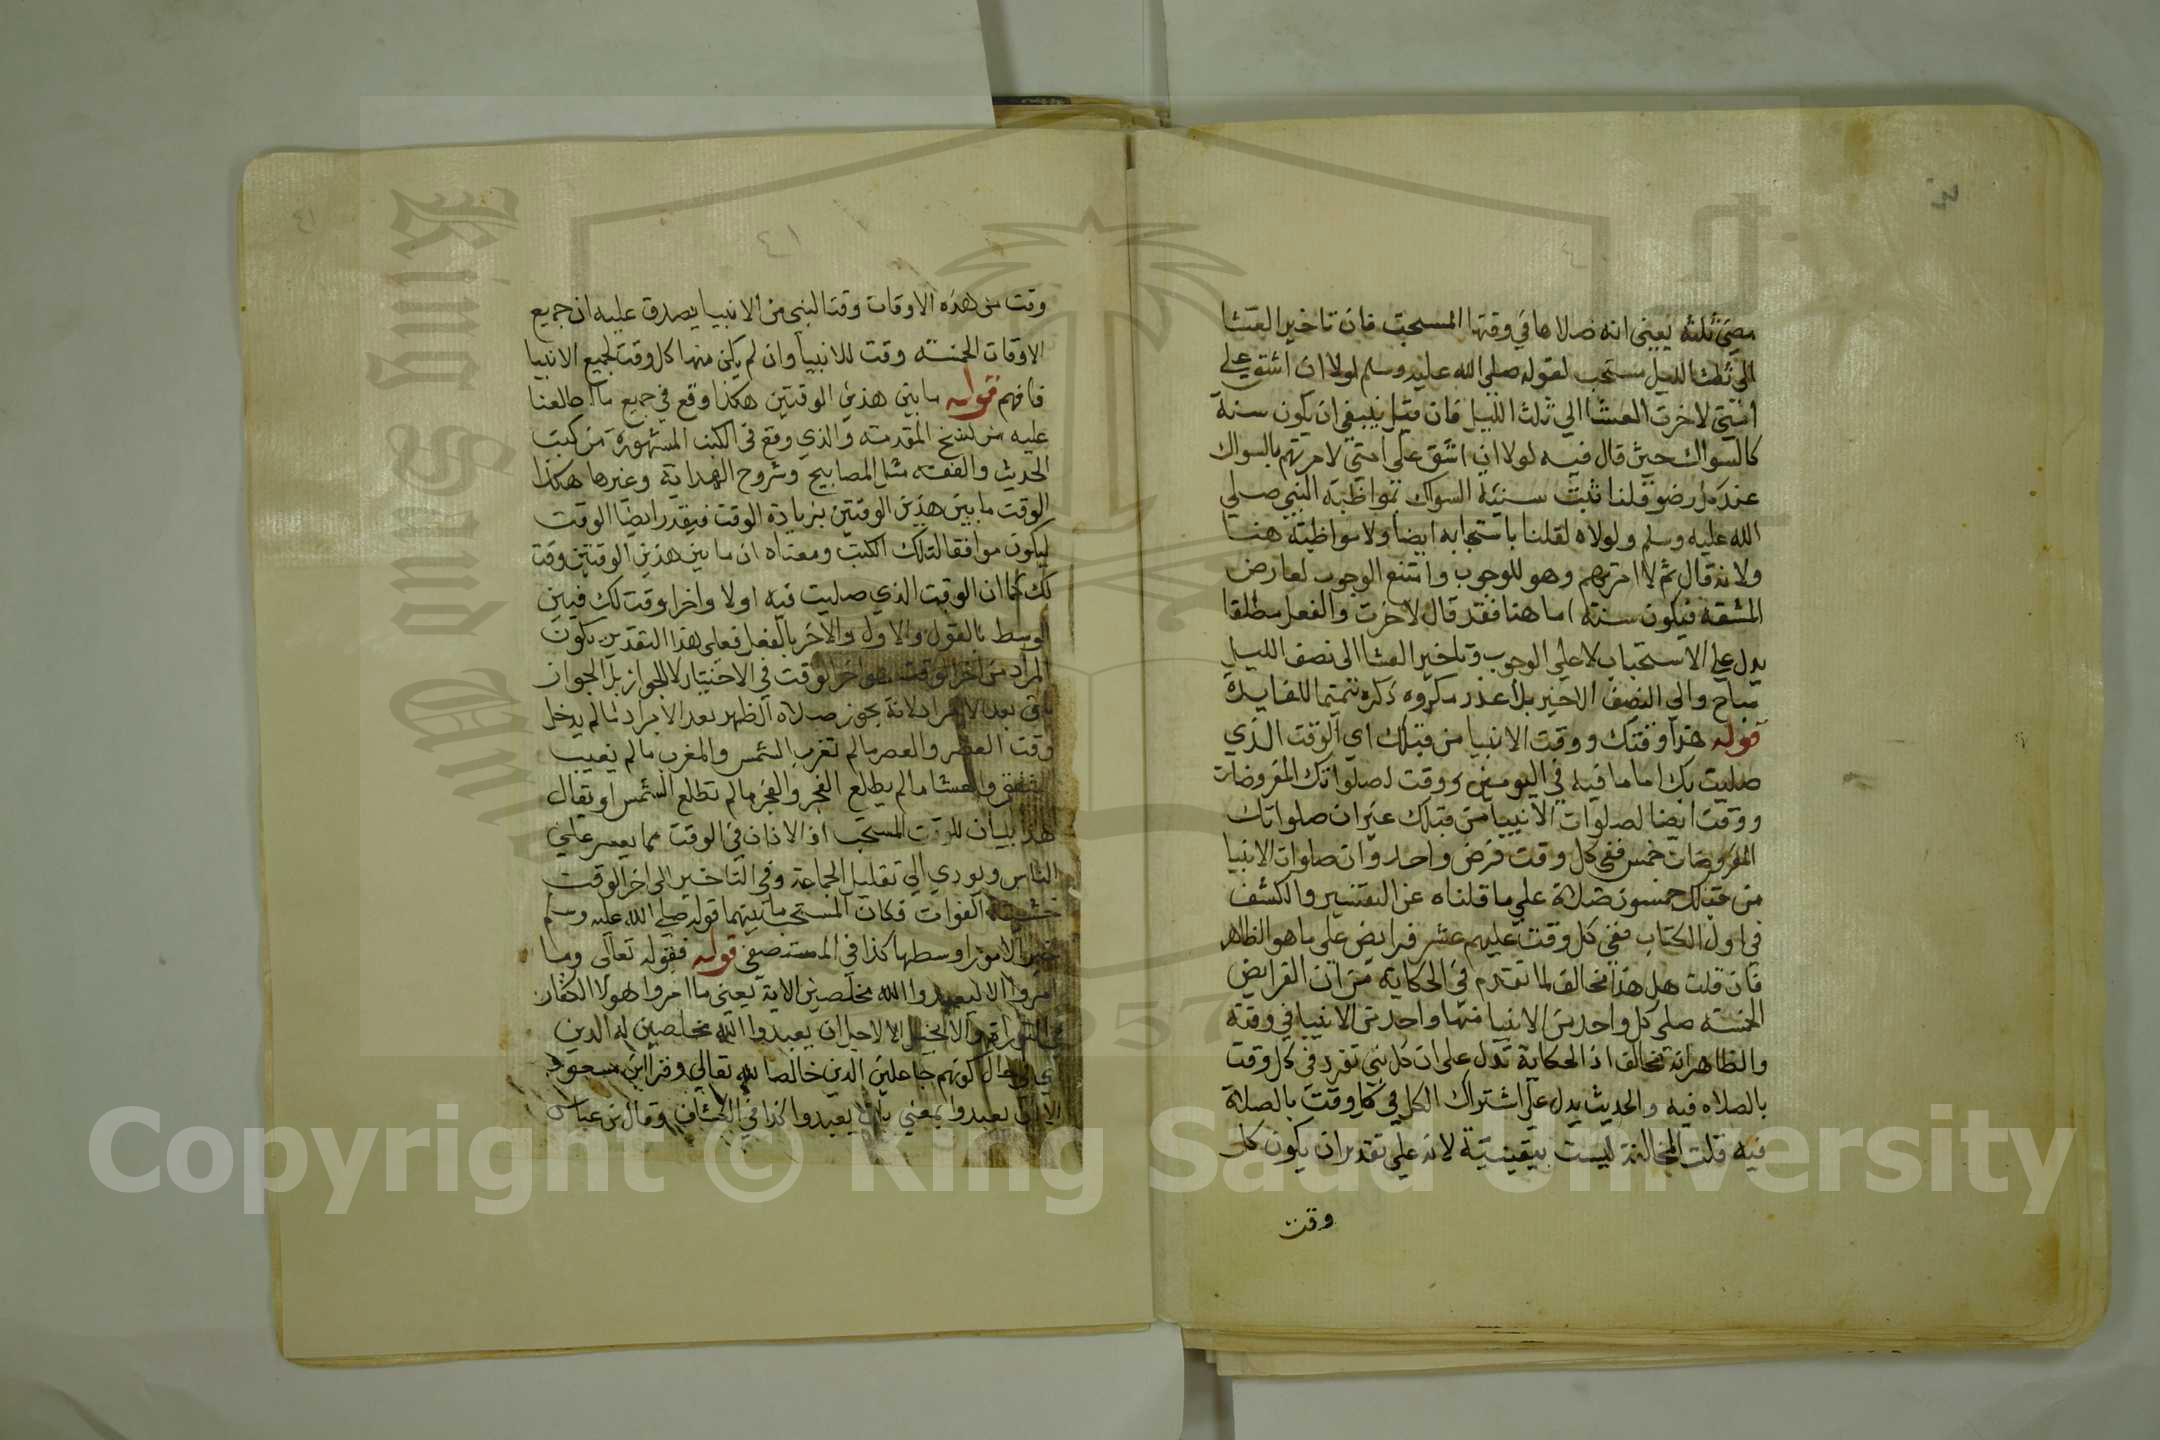 مضي ثلثه يعني انه صلاها في وقتها المستحب فان تاخير العشا
الي ثلث الليل مستحب لقوله صلي الله عليه وسلم لولا ان اشق علي
امتي لاخرت العشا الي ثلث الليل فان قيل ينبغي ان يكون سنة
كالسواك حيث قال فيه لولا ان اشق علي امتي لامرتهم بالسواك
عند كل وضو قلنا ثبت سنية السواك بمواظبة النبي صلي
الله عليه وسلم ولولاه لقلنا باستحبابه ايضا ولا مواظبة هنا
ولانه قال ثم لامرتهم وهو للوجوب وامتنع الوجوب لعارض
المشقة فيكون سنة اما هنا فقد قال لاخرت والفعل مطلقا
يدل علي الاستحباب لا علي الوجوب وتاخير العشا الي نصف الليل
مباح والي النصف الاخير بلا عذر مكروه ذكره تتميما للفايدة
قوله هذا وقتك ووقت الانبيا من قبلك اي الوقت الذي
صليت بك اماما فيه في اليومين وقت لصلواتك المفروضات
ووقت ايضا لصلوات الانبيا من قبلك غير ان صلواتك
المفروضات خمس ففي كل وقت فرض واحد وان صلوات الانبيا
من قبلك خمسون صلاة علي ما قلناه عن التفسير والكشف
في اول الكتاب ففي كل وقت عليهم عشر فرايض علي ما هو الظاهر
فان قلت هل هذا مخالف لما تقدم في الحكاية من ان الفرايض
الخمسة صلي كل واحد من الانبيا منها واحد من الانبيا في وقته
والظاهر انه مخالف اذ الحكاية تدل علي ان كل نبي تفرد في كل وقت
بالصلاه فيه والحديث يدل علي اشتراك الكل في كل وقت بالصلاة
فيه قلت المخالفة ليست بيقينية لانه علي تقدير ان يكون كل
وقت
وقت من هذه الاوقات وقت النبي من الانبيا يصدق عليه ان جميع
الاوقات الخمسة وقت للانبيا وان لم يكن منها كل وقت لجميع الانبيا
فافهم قوله ما بين هذين الوقتين هكذا وقع في جميع ما اطلعنا
عليه من نسخ المقدمة والذي وقع في الكتب المشهورة من كتب
الحديث والفقه مثل المصابيح وشروح الهداية وغيرها هكذا
الوقت ما بين هذين الوقتين بزيادة الوقت فيقدر ايضا الوقت
ليكون موافقا لتلك الكتب ومعناه ان ما بين هذين الوقتين وقت
لك كما ان الوقت الذي صليت فيه اولا واخرا وقت لك فبين
الوسط بالقول والاول والاخر بالفعل فعلي هذا التقدير يكون
المراد من اخر الوقت هو اخر الوقت في الاختيار لا الجواز بل الجواز
باق بعد الابراد لانه يجوز صلاة الظهر بعد الابراد ما لم يدخل
وقت العصر والعصر ما لم تغرب الشمس والمغرب ما لم يغيب
الشفق والعشا ما لم يطلع الفجر والفجر ما لم تطلع الشمس او يقال
هذا بيان للوقت المستحب اذ الاذان في الوقت مما يعسر علي
الناس ويودي الي تقليل الجماعة وفي التاخير الي اخر الوقت
خشية الفوات فكان المستحب ما بينهما قوله صلي الله عليه وسلم
خير الامور اوسطها كذا في المستصفي قوله فقوله تعالي وما
امروا الا ليعبدوا الله مخلصين الاية يعني ما امروا هولا الكفار
في التوراة والانجيل الا لاجل ان يعبدوا الله مخلصين له الدين
اي حال كونهم جاعلين الدين خالصا لله تعالي وقرا ابن مسعود
الا ان يعبدوا بمعني بان يعبدوا كذا في الكشاف وقال بن عباس
Copyright © King Saud University